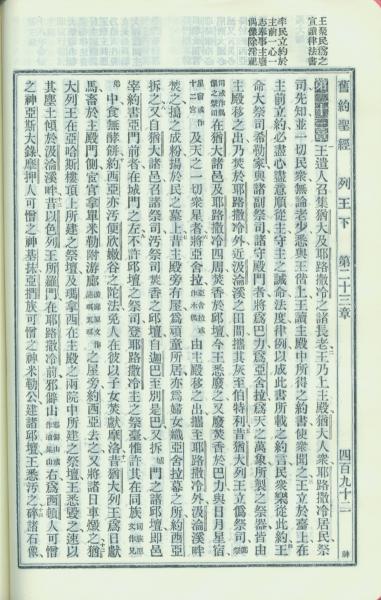 王聚民爲之
宣讀律法書
率民立約於
主前一心一
志奉事主廢
偶像除淫祀
舊約聖經 列王下 第二十三章 四百九十二
第二十三章 王遣人召集猶大及耶路撒冷之諸長老王乃上主殿猶大人衆耶路撒冷居民祭
司先知並一切民衆無論老少悉與王偕上王讀主殿中所得之約書使衆聞之王立於臺上在
主前立約必盡心盡意順從主守主之誡命法度律例以成此書所載之約言民衆樂從此約王
命大祭司希勒家與諸副祭司諸守殿門者將爲巴力爲亞舍拉爲天之萬象所製之祭器皆由
主殿移之出乃焚於耶路撒冷外近汲淪溪之田間攜其灰至伯特利昔猶大列王立僞祭司
在猶大諸邑及耶路撒冷四周焚香於邱壇今王悉廢之又廢焚香於巴力與日月星宿
及天之一切衆星者將亞舍拉 由主殿移之出攜至耶路撒冷外汲淪溪畔
焚之搗之成粉揚於民之墓上昔主殿旁有屋爲頑童所居亦爲婦女織亞舍拉幕之所約西亞
拆之又自猶大諸邑召諸祭司污祭司焚香之邱壇自迦巴至別是巴又拆 城門之諸邱壇即邑
宰約書亞門前者在城門之左不許邱壇之祭司登耶路撒冷主之祭臺惟許其在同族
中食無酵餅約西亞亦污便欣嫩谷之陀法惡人在彼以子女焚獻摩洛昔猶大列王爲日獻
馬畜於主殿門側宦官拿單米勒附游廊 之屋旁約西亞去之又將諸日車燬之猶
大列王在亞哈斯樓頂上所建之祭壇及瑪拿西在主殿之兩院中所建之祭壇王悉毀之速以
其塵土傾於汲淪溪畔昔以色列王所羅門在耶路撒冷前邪辟山 右爲西頓人可憎
之神亞斯大錄摩押人可憎之神基抹亞捫族可憎之神米勒公建諸邱壇王悉污之碎諸石像